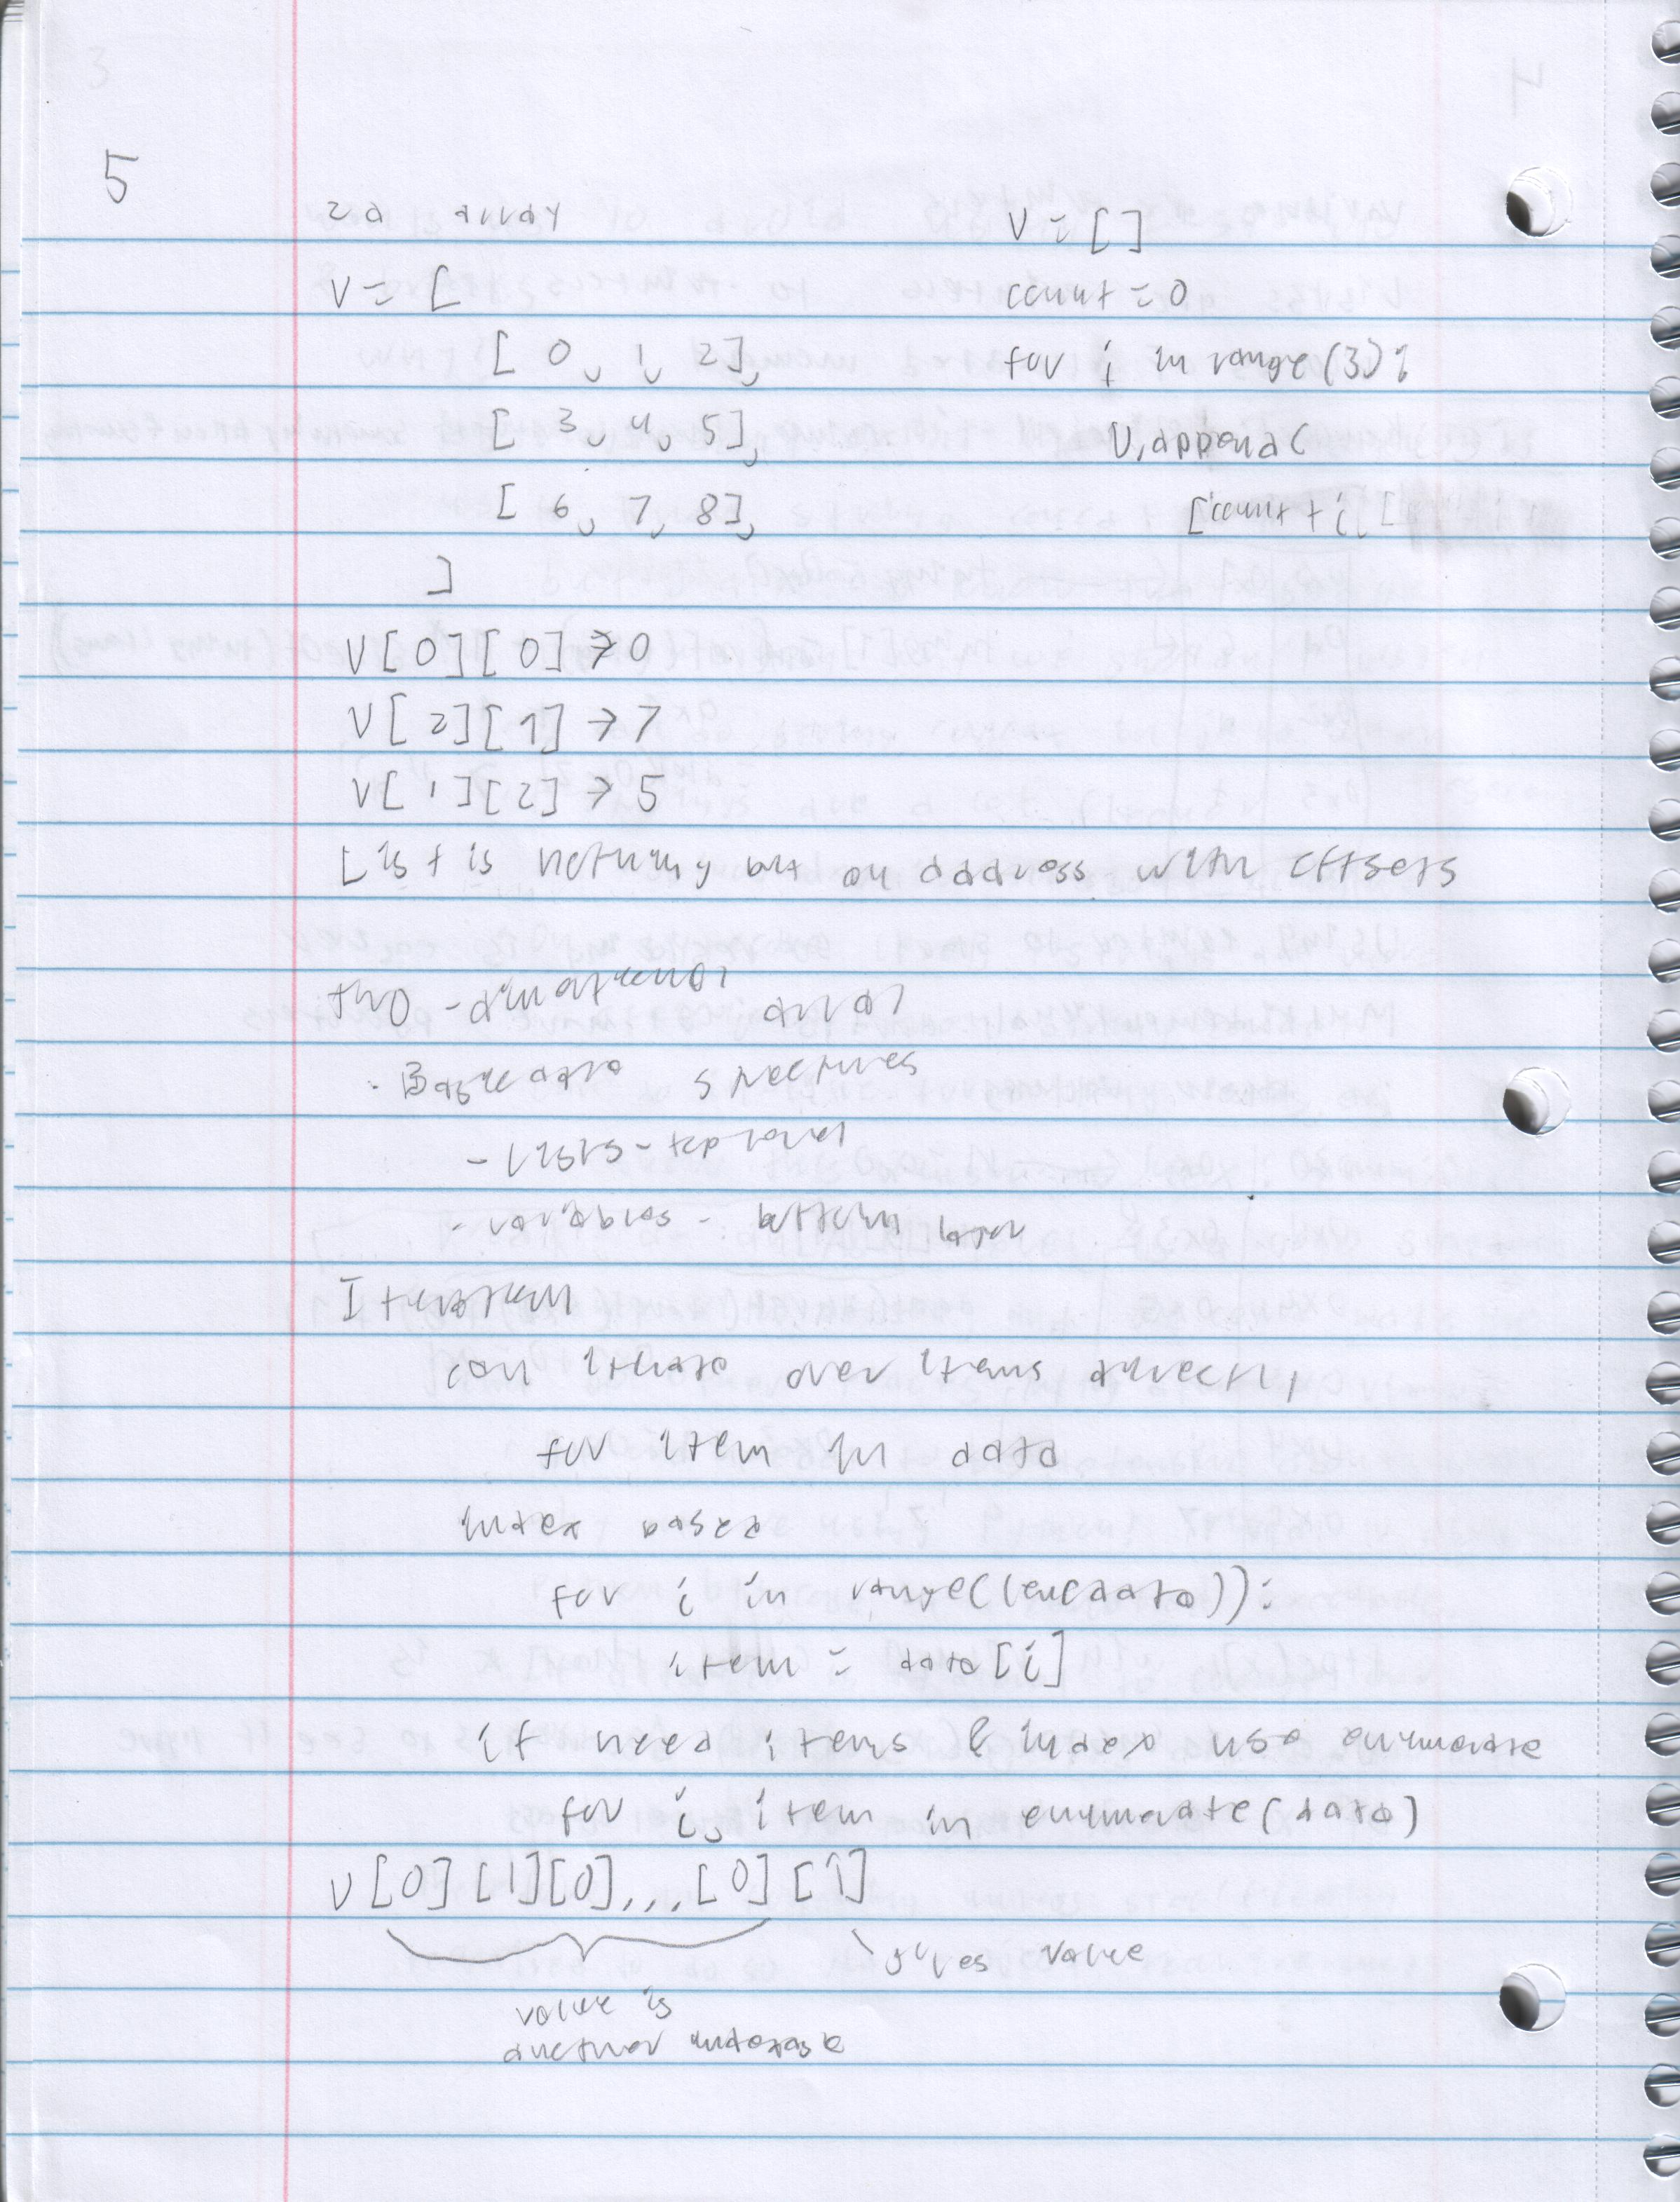 5
2d array
V = [
[ 0, 1, 2],
[ 3, 4, 5],
[ 6, 7, 8],
]
V[0][0] → 0
V[2][1] → 7
V[1][2] → 5
V = []
count = 0
for i in range(3):
V.append(
[count + i
List is nothing but an address with offsets
two-dimensional array
· Basic data structures
- lists - top level
- variables - bottom layer
Iteration
can iterate over items directly
for item in data
index based
for i in range(len(data)):
item = data[i]
if need items & index use enumerate
for i, item in enumerate(data)
V[0][1][0]...[0][1]
gives value
value is
another indexable